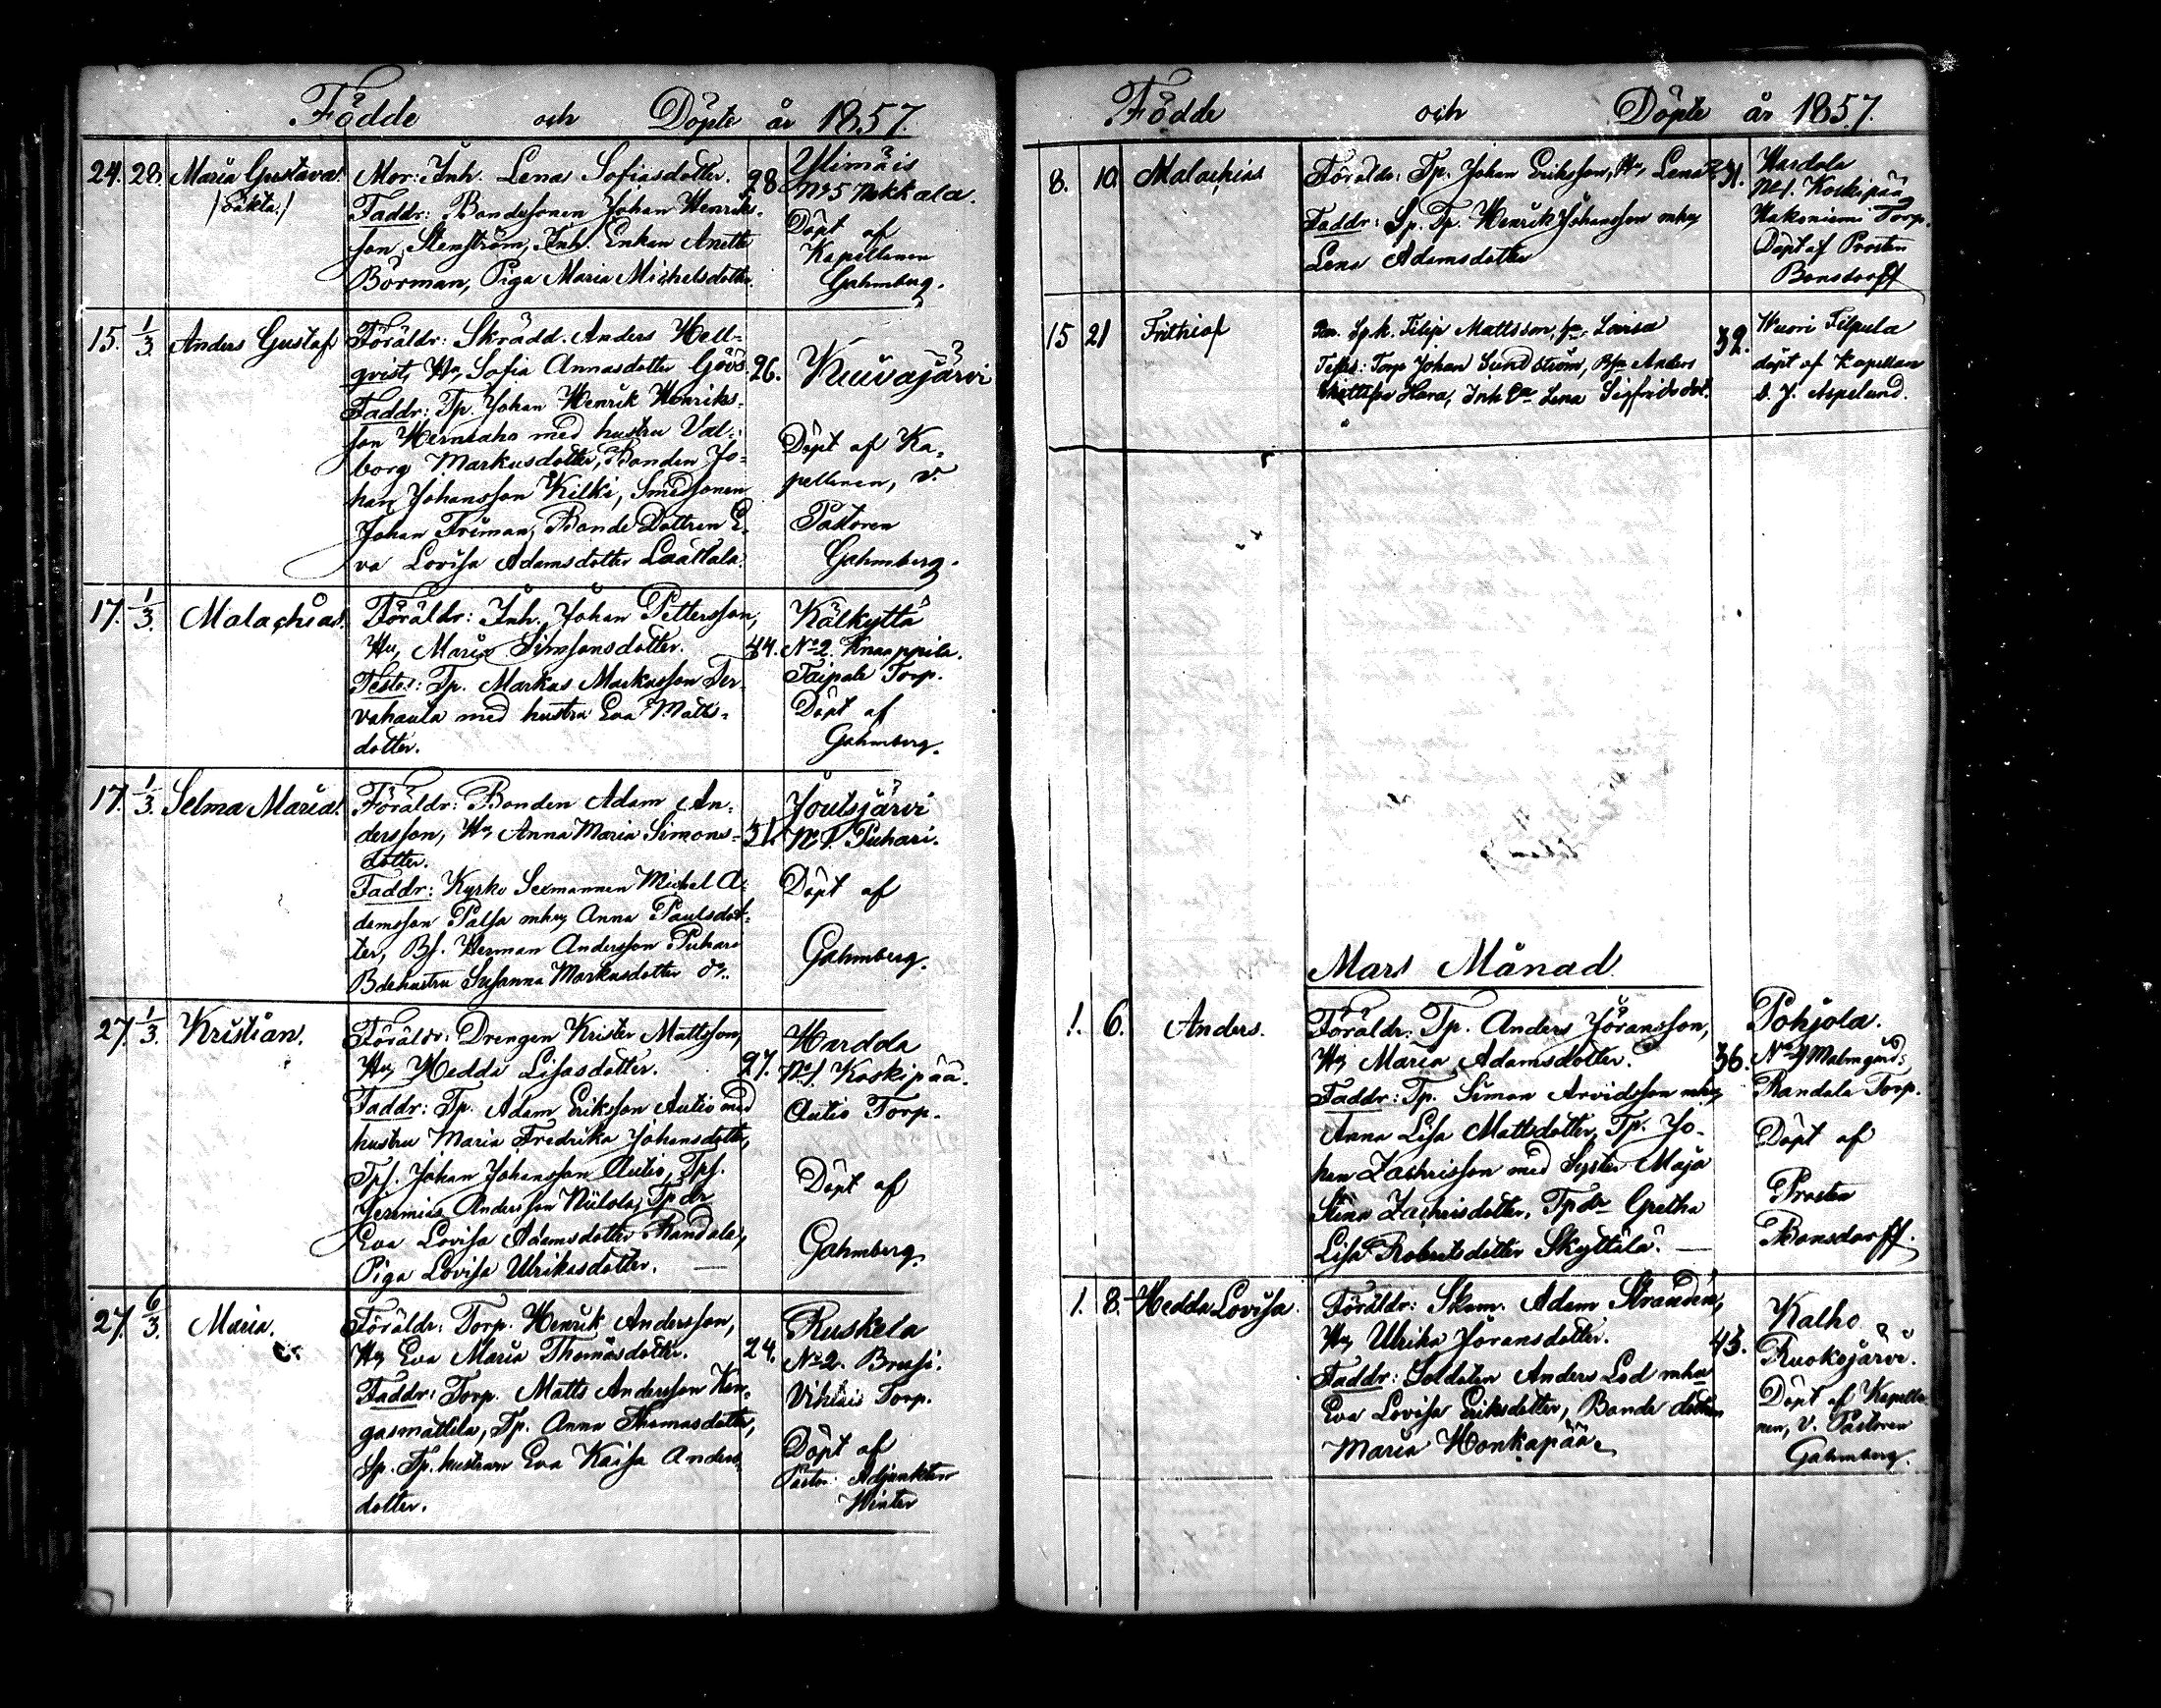 Födde och Döpte år 1857.
24. 28. Maria Gustava.
/oäkta./
Mor: Inh. Lena Sofiasdotter. 28.
Faddr: Bondesonen Johan Henriks-
son Stenström, Inh. Enkan Anette
Börman, Piga Maria Michelsdotter.
Ylimäis
No 5 Nokkala.
Döpt af
Kapellanen
Gahmberg.
15. 1/3. Anders Gustaf.
Föräldr: Skrädd. Anders Hell-
qvist, Hu, Sofia Annasdotter Göös. 26.
Faddr: Tp. Johan Henrik Henriks-
son Herneaho med hustru Val-
borg Markusdotter, Bonden Jo-
han Johansson Kilki, Smedsonen
Johan Friman, Bonde Dottren E-
va Lovisa Adamsdotter Laattala.
Kuivajärvi
Döpt af Ka-
pellanen, v.
Pastoren
Gahmberg.
17. 1/3. Malachias.
Föräldr: Inh. Johan Pettersson,
Hu, Maria Simsonsdotter. 44.
Testes: Tp. Markus Markusson Ter-
vahauta med hustru Eva Matts-
dotter.
Kälkyttä
No 2. Knaappila.
Taipale Torp.
Döpt af
Gahmberg.
17. 1/3. Selma Maria.
Föräldr: Bonden Adam An-
dersson, Hu, Anna Maria Simons- 31.
dotter.
Faddr: Kyrko Sexmannen Michel A-
damsson Palsa mhu, Anna Paulsdot-
ter, Bs. Herman Andersson Puhari
Bdehustru Susanna Markusdotter do.
Joutsjärvi
No 1 Puhari.
Döpt af
Gahmberg.
27. 1/3. Kristian.
Föräldr: Drengen Krister Mattsson,
Hu, Hedda Lisasdotter. 27.
Faddr: Tp. Adam Eriksson Autio med
hustru Maria Fredrika Johansdotter,
Tps. Johan Johansson Autio, Tps.
Jeremias Andersson Niitola, Tp dr
Eva Lovisa Adamsdotter Randala,
Piga Lovisa Ulrikasdotter.
Hardola
No 1. Koskipää.
Autio Torp.
Döpt af
Gahmberg.
27. 6/3. Maria.
Föräldr: Torp. Henrik Andersson,
Hu Eva Maria Thomasdotter. 24.
Faddr: Torp. Matts Andersson Kan-
gasmattila, Tp. Anna Thomasdotter,
Sp. Tp. hustrun Eva Kaisa Anders-
dotter.
Ruskela
No 2.
Torp.
Döpt af
Pastor: Adjunkten
Winter
Födde och Döpte år 1857.
8. 10. Malachias
Föräldr: Tp. Johan Eriksson, Hu, Lena 31.
Faddr: Sp. Tp. Henrik Johansson mhu,
Lena Adamsdotter
Hardola
No 1. Koskipää
Hakoniemi Torp.
Döpt af Prosten
Bonsdorff
15 21 Frithiof
Spk. Filip Mattsson, Lovisa 32.
Testes: Torp Johan Sundström, Anders
Hara, Inh Lena Sigfridsdot.
Wuori Filpula
döpt af Kapellan
Aspelund.
Mars Månad.
1. 6. Anders.
Föräldr: Tp. Anders Jöransson,
Hu, Maria Adamsdotter. 36.
Faddr: Tp. Simon Arvidsson mhu,
Anna Lisa Mattsdotter, Tp. Jo-
han Zachrisson med Syster Maja
Stina Zachrisdotter, Tpdr Gretha
Lisa Robertsdotter Skyttälä.
Pohjola.
No 4 Malmgård.
Randala Torp.
Döpt af
Prosten
Bonsdorff.
1. 8. Hedda Lovisa.
Föräldr: Skom. Adam Strandén,
Hu, Ulrika Jöransdotter. 43.
Faddr: Soldaten Anders Lod mhu
Eva Lovisa Eriksdotter, Bonde dottren
Maria Honkapää.
Kalho
Ruokojärvi.
Döpt af Kapella-
nen, v. Pastoren
Gahmberg.